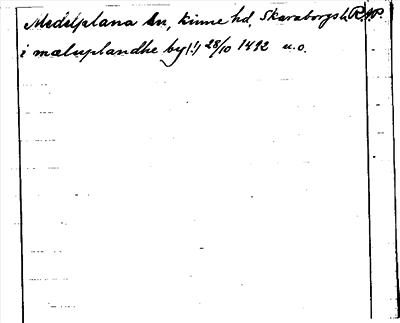 Medelplana sn, Kinne hd, Skaraborgs l. RAP.
i mæluplandhe by(!) 28/10 1492 u.o.